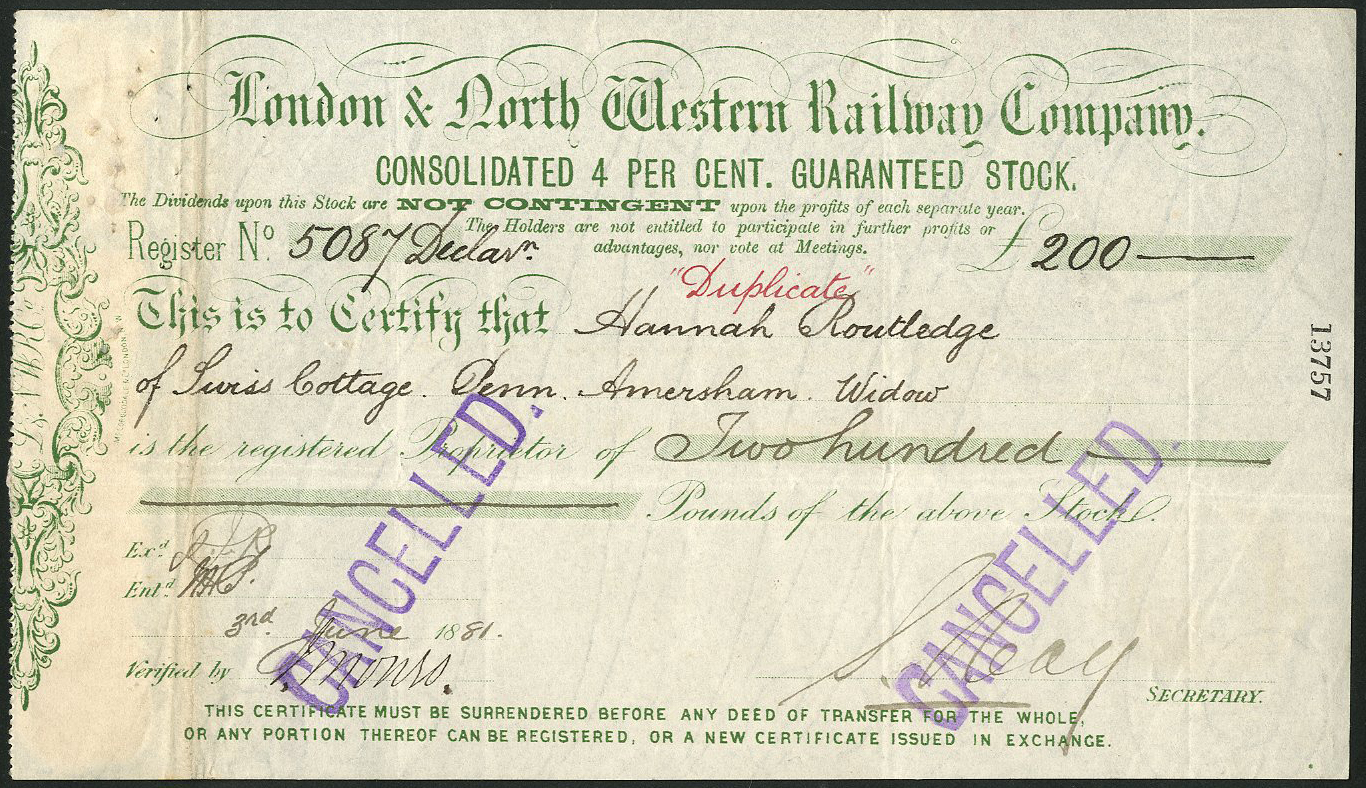 London & North Western Railway Company.
CONSOLIDATED 4 PER CENT. GUARANTEED STOCK.
The Dividends upon this Stock are NOT CONTINGENT upon the profits of each separate year.
The Holders are not entitled to participate in further profits or
advantages, nor vote at Meetings.
Register No. 5087 Declarn.
£200
"Duplicate"
This is to Certify that Hannah Routledge
of Swiss Cottage. Penn. Amersham. Widow
is the registered Proprietor of Two hundred
Pounds of the above Stock.
Exd.
Entd.
3rd. June 1881.
Verified by
SECRETARY.
THIS CERTIFICATE MUST BE SURRENDERED BEFORE ANY DEED OF TRANSFER FOR THE WHOLE,
OR ANY PORTION THEREOF CAN BE REGISTERED, OR A NEW CERTIFICATE ISSUED IN EXCHANGE.
CANCELLED.
CANCELLED.
13757